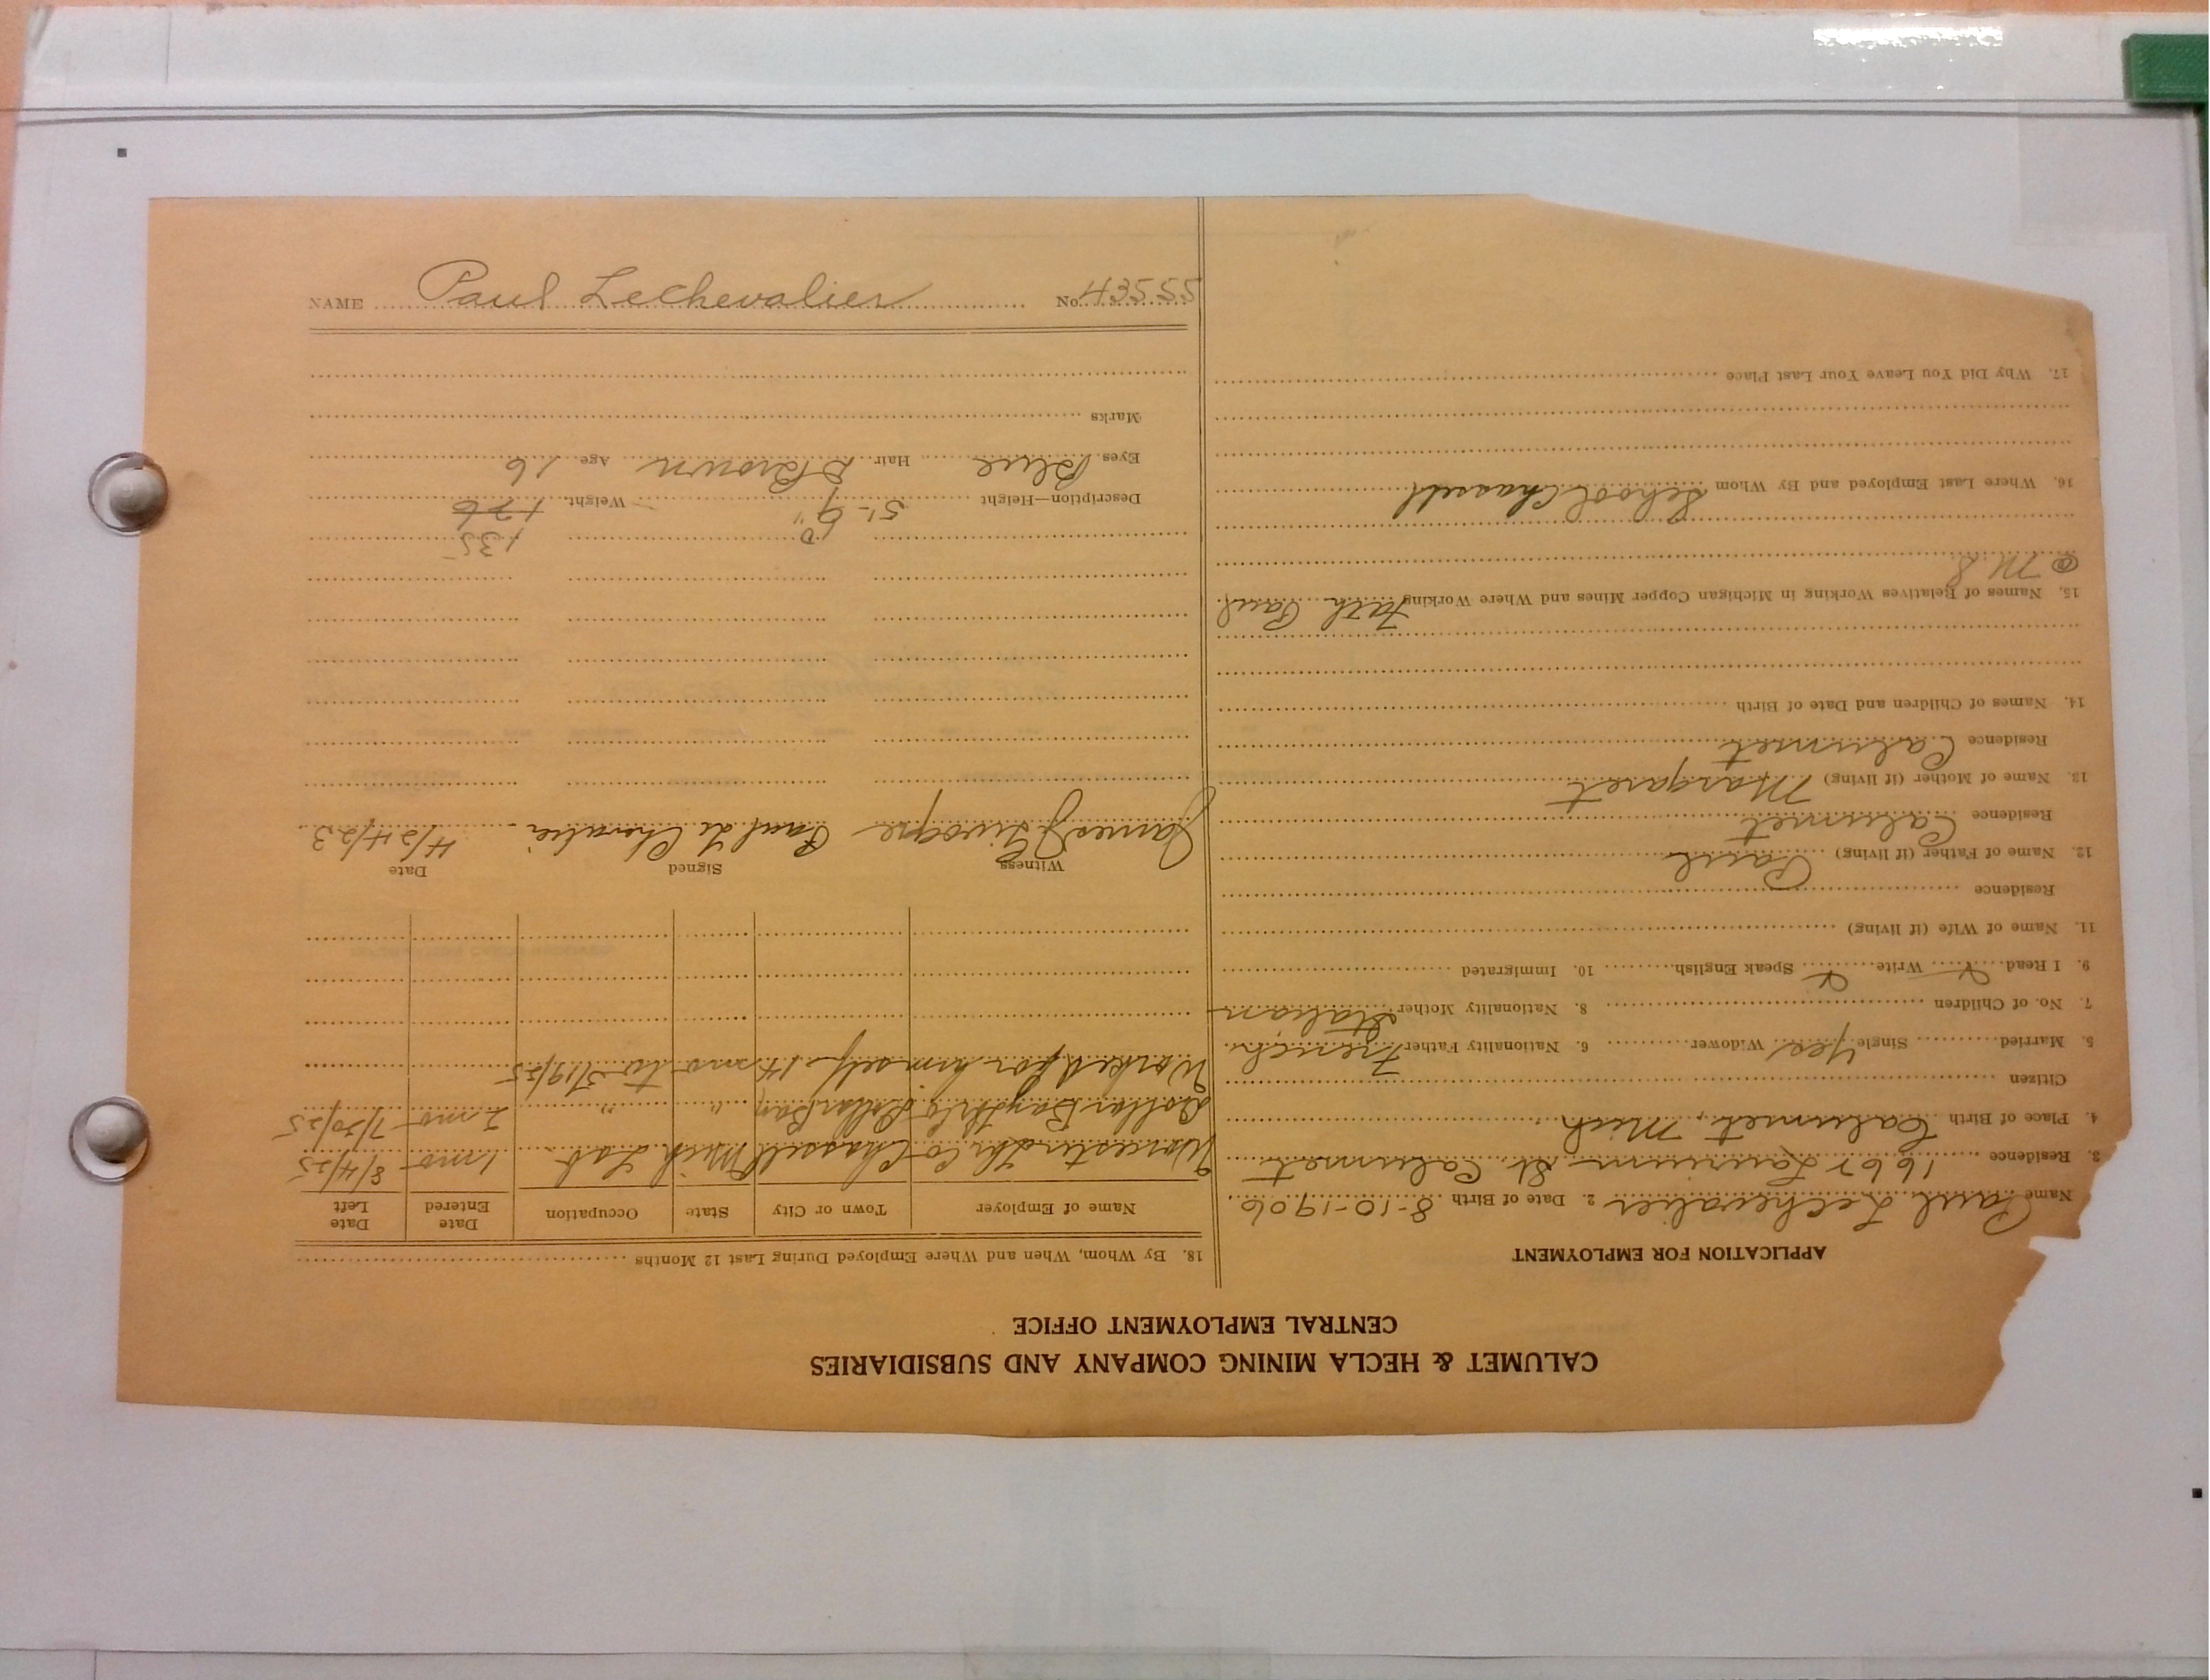 CALUMET & HECLA MINING COMPANY AND SUBSIDIARIES
CENTRAL EMPLOYMENT OFFICE
APPLICATION FOR EMPLOYMENT
Name Paul LeChevalier 2. Date of Birth 8-10-1906
3. Residence 1667 Laurium St. Calumet
4. Place of Birth Calumet, Mich
Citizen
5. Married Single Yes Widower 6. Nationality Father French
7. No. of Children 8. Nationality Mother Italian
9. I Read Write Speak English 10. Immigrated
11. Name of Wife (if living)
Residence
12. Name of Father (if living) Paul
Residence Calumet
13. Name of Mother (if living) Margaret
Residence Calumet
14. Names of Children and Date of Birth
15. Names of Relatives Working in Michigan Copper Mines and Where Working Fath Paul
16. Where Last Employed and By Whom School Chassell
17. Why Did You Leave Your Last Place
18. By Whom, When and Where Employed During Last 12 Months
Name of Employer Town or City State Occupation Date Entered Date Left
Worcester Lbr Co Chassell Mich Lab 1 mo 8/4/25
Dollar Bay Dollar Bay " " 2 mo 7/30/25
Worked for himself 14 mo to 3/19/25
Witness Signed Date
James Paul Le Chevalier 4/24/23
135
Description—Height 5'-9" Weight 176
Eyes Blue Hair Brown Age 16
Marks
NAME Paul LeChevalier No. 43555